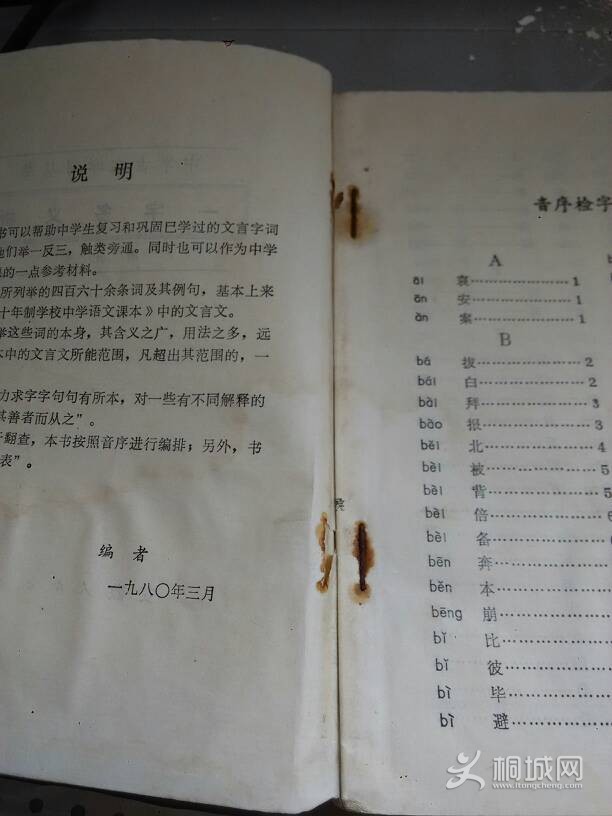 说明
书可以帮助中学生复习和巩固已学过的文言字词
他们举一反三，触类旁通。同时也可以作为中学
的一点参考材料。
所列举的四百六十余条词及其例句，基本上来
十年制学校中学语文课本》中的文言文。
举这些词的本身，其含义之广，用法之多，远
本中的文言文所能范围，凡超出其范围的，一
力求字字句句有所本，对一些有不同解释的
其善者而从之”。
于翻查，本书按照音序进行编排；另外，书
表”。
编者
一九八〇年三月
音序检字
A
āi 哀 1
ān 安 1
àn 案 1
B
bá 拔 2
bái 白 2
bài 拜 3
bào 报 3
běi 北 4
bèi 被 5
bèi 背 5
bèi 倍 6
bèi 备
bēn 奔
běn 本
bēng 崩
bǐ 比
bǐ 彼
bì 毕
bì 避
桐城网
www.itongcheng.com